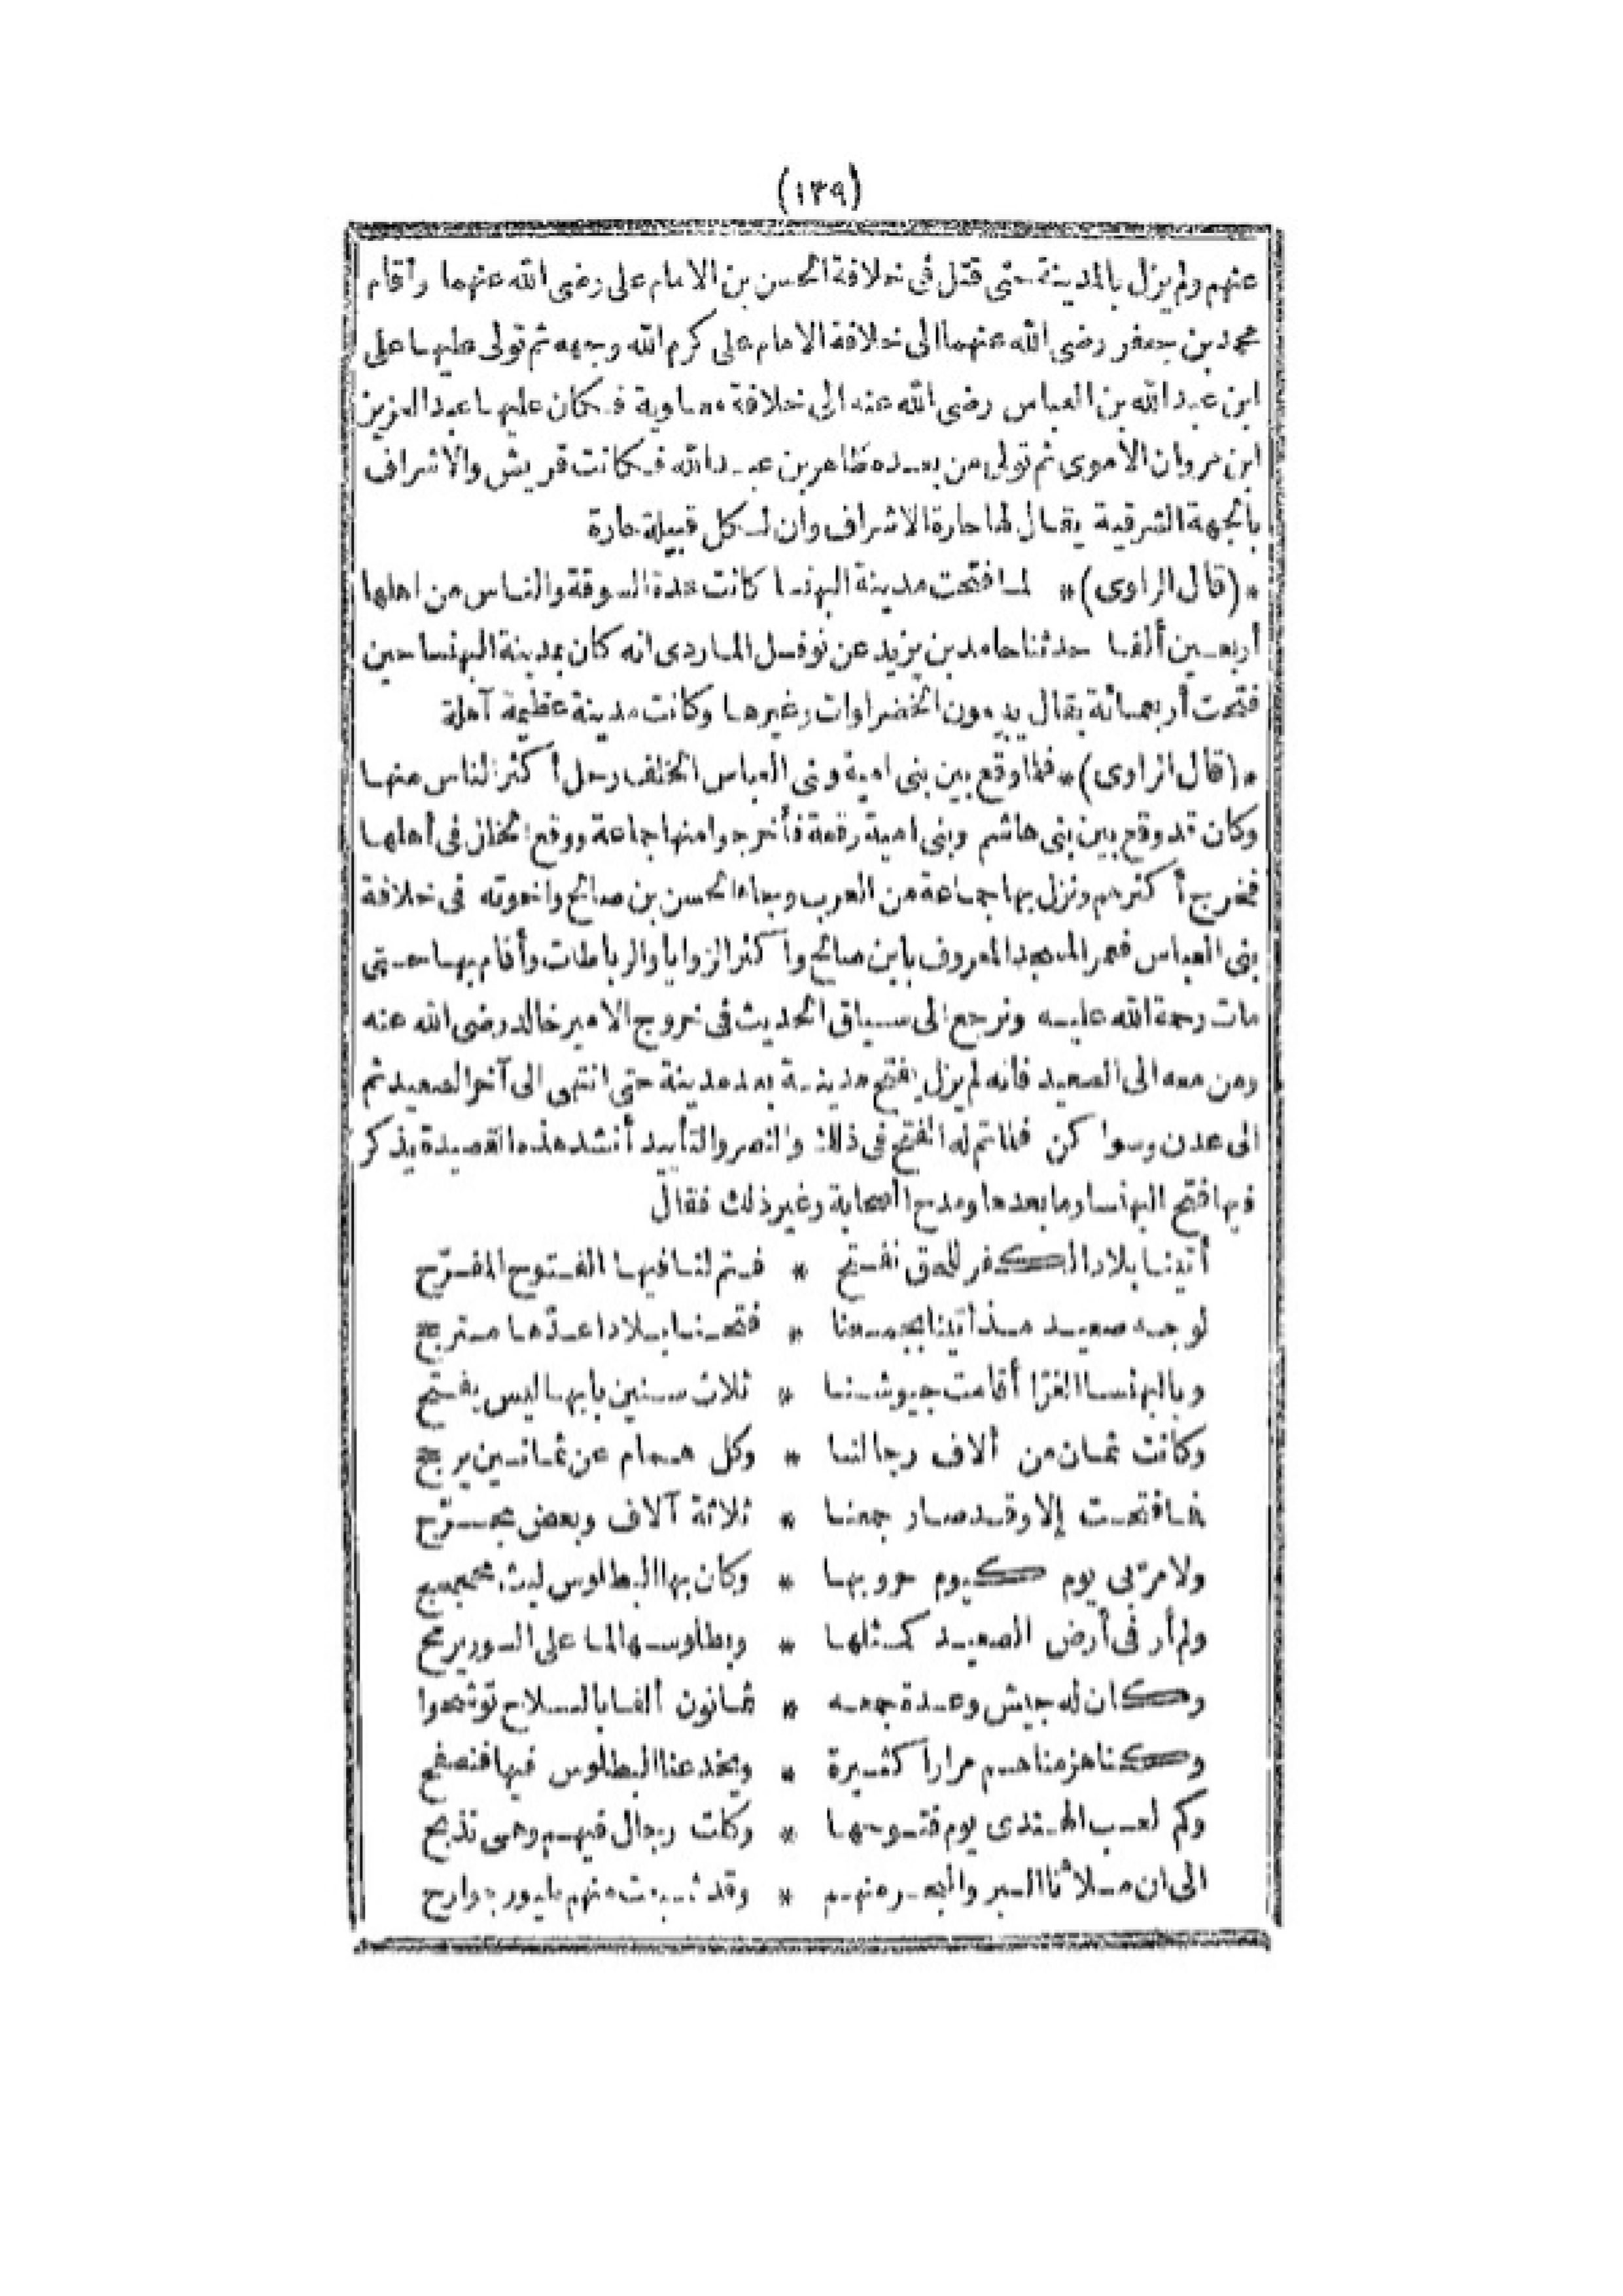 (١٣٩)
عنهم ولم يزل بالمدينة حتى قتل فى خلافة الحسن بن الامام على رضى الله عنهما وأقام
محمد بن جعفر رضى الله عنهما الى خلافة الامام على كرم الله وجهه ثم تولى عليها على
ابن عبد الله بن العباس رضى الله عنه الى خلافة معاوية فكان عليها عبد العزيز
ابن مروان الأموى ثم تولى من بعده طاهر بن عبد الله فكانت قريش والاشراف
بالجهة الشرقية يقال لها حارة الاشراف وان لكل قبيلة حارة
*(قال الراوى)* لما فتحت مدينة البهنسا كانت عدة السوقة والناس من اهلها
أربعين ألفا حدثنا حامد بن يزيد عن نوفل الماردى انه كان بمدينة البهنسا حين
فتحت أربعمائة بقال يبيعون الخضراوات وغيرها وكانت مدينة عظيمة آهلة
*(قال الراوى)* فلما وقع بين بنى امية وبنى العباس الخلف رحل أكثر الناس منها
وكان قد وقع بين بنى هاشم وبنى امية وقعة فأخرجوا منها جماعة ووقع فى أهلها
فخرج أكثرهم ونزل بها جماعة من العرب وجاء الحسن بن صالح واخوته فى خلافة
بنى العباس فعمر المسجد المعروف بابن صالح وأكثر الزوايا والرباطات وأقام بها حتى
مات رحمة الله عليه ونرجع الى سياق الحديث فى خروج الامير خالد رضى الله عنه
ومن معه الى الصعيد فانه لم يزل يفتح مدينة بعد مدينة حتى انتهى الى آخر الصعيد ثم
الى عدن وسواكن فلما تم له الفتح فى ذلك والنصر والتأييد أنشد هذه القصيدة يذكر
فيها فتح البهنسا وما بعدها ومدح الصحابة وغير ذلك فقال
أتينا بلاد الكفر للحق نفتح * فتم لنا فيها الفتوح المفرّح
لوجه صعيد مذ أتينا بجمعنا * فتحنا بلادا عدّها مترجح
وبالبهنسا الغرّا أقامت جيوشنا * ثلاث سنين بابها ليس يفتح
وكانت ثمان من ألاف رجالنا * وكل همام عن ثمانين يرجح
فما فتحت إلا وقد صار جمعنا * ثلاثة آلاف وبعض مجرّح
ولا مرّ بى يوم كيوم حروبها * وكان بها البطلوس ليث
ولم أر فى أرض الصعيد كمثلها * وبطلوسها على السور يرمح
وكان له جيش وعدة جمعه * ثمانون ألفا بالسلاح توشحوا
وكنا هزمناهم مرارا كثيرة * ويخدعنا البطلوس فيها فنصفح
وكم لعب الهندى يوم فتوحها * وكلت رجال فيهم وهى تذبح
الى ان ملأنا البر والبحر منهم * وقد منهم طيور جوارح